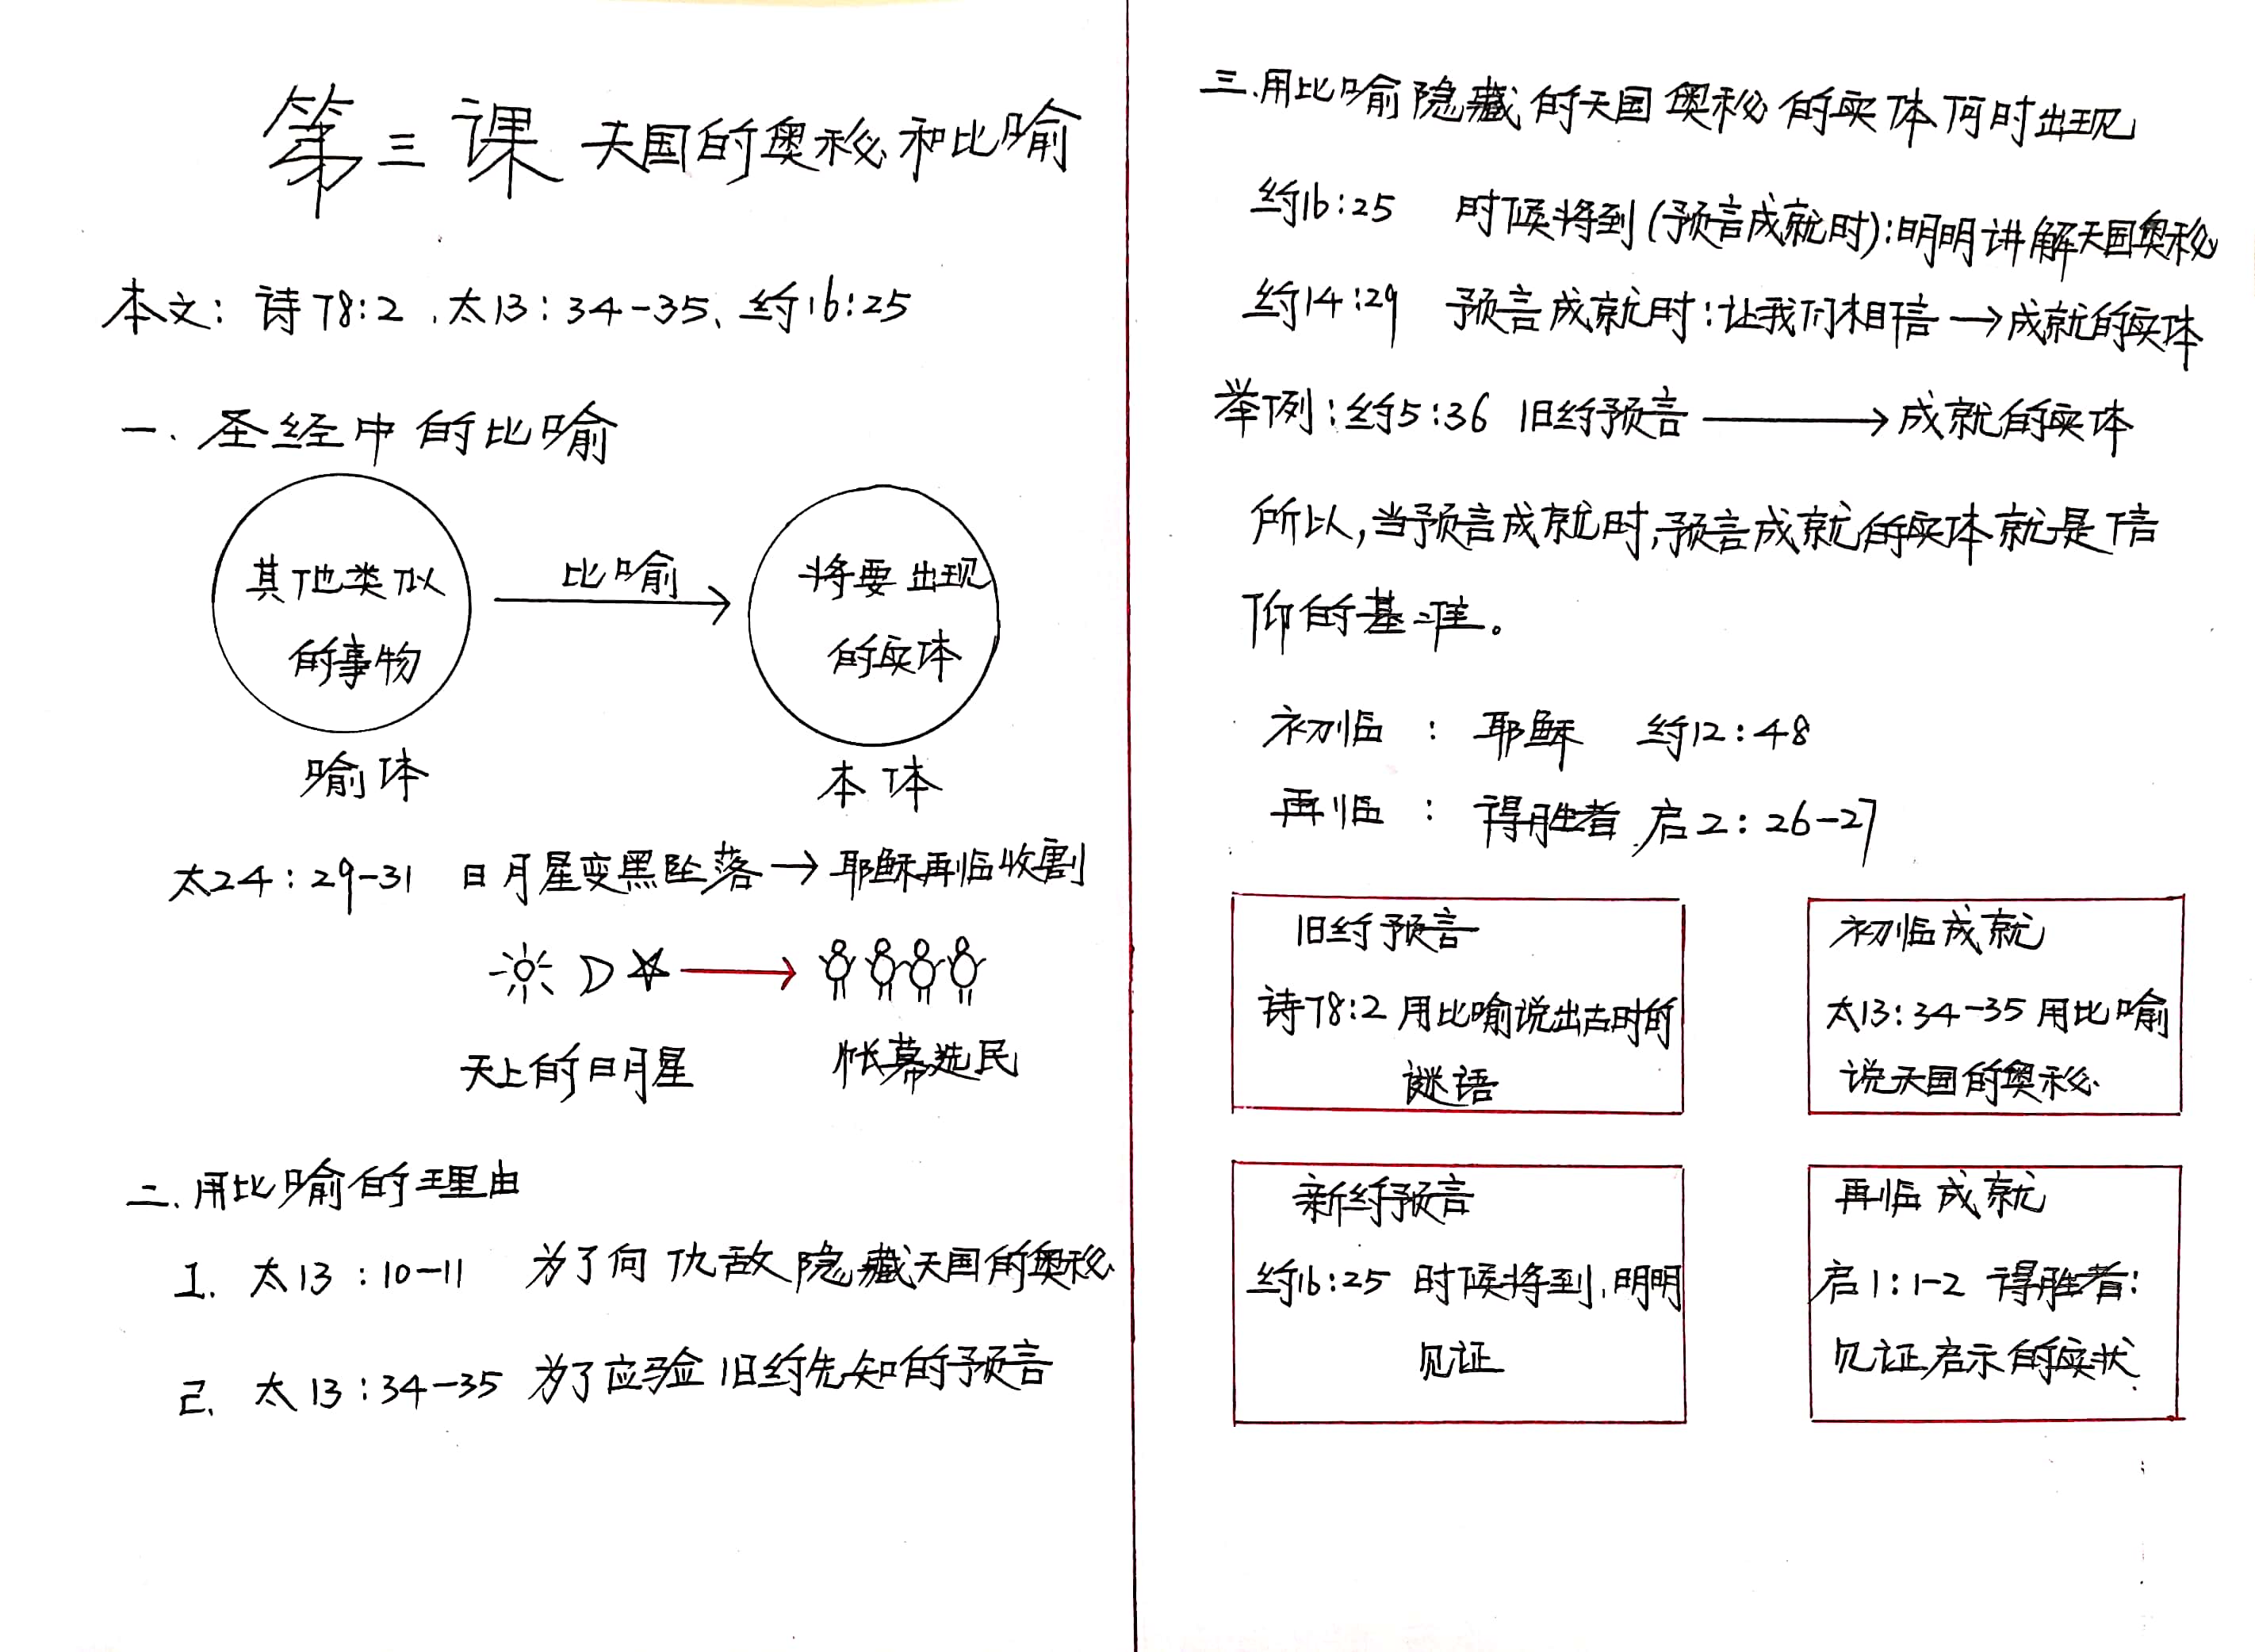 第三课 天国的奥秘和比喻
本文: 诗78:2、太13:34-35、约16:25
一、圣经中的比喻
其他类似
的事物
比喻
将要出现
的实体
喻体
本体
太24:29-31 日月星变黑坠落→耶稣再临收割
天上的日月星
帐幕选民
二、用比喻的理由
1. 太13:10-11 为了向仇敌隐藏天国的奥秘
2. 太13:34-35 为了应验旧约先知的预言
三、用比喻隐藏的天国奥秘的实体何时出现
约16:25 时候将到(预言成就时):明明讲解天国奥秘
约14:29 预言成就时:让我们相信→成就的实体
举例:约5:36 旧约预言→成就的实体
所以,当预言成就时,预言成就的实体就是信
仰的基准。
初临 : 耶稣 约12:48
再临 : 得胜者 启2:26-27
旧约预言
诗78:2 用比喻说出古时的
谜语
初临成就
太13:34-35 用比喻
说天国的奥秘
新约预言
约16:25 时候将到,明明
见证
再临成就
启1:1-2 得胜者:
见证启示的实状